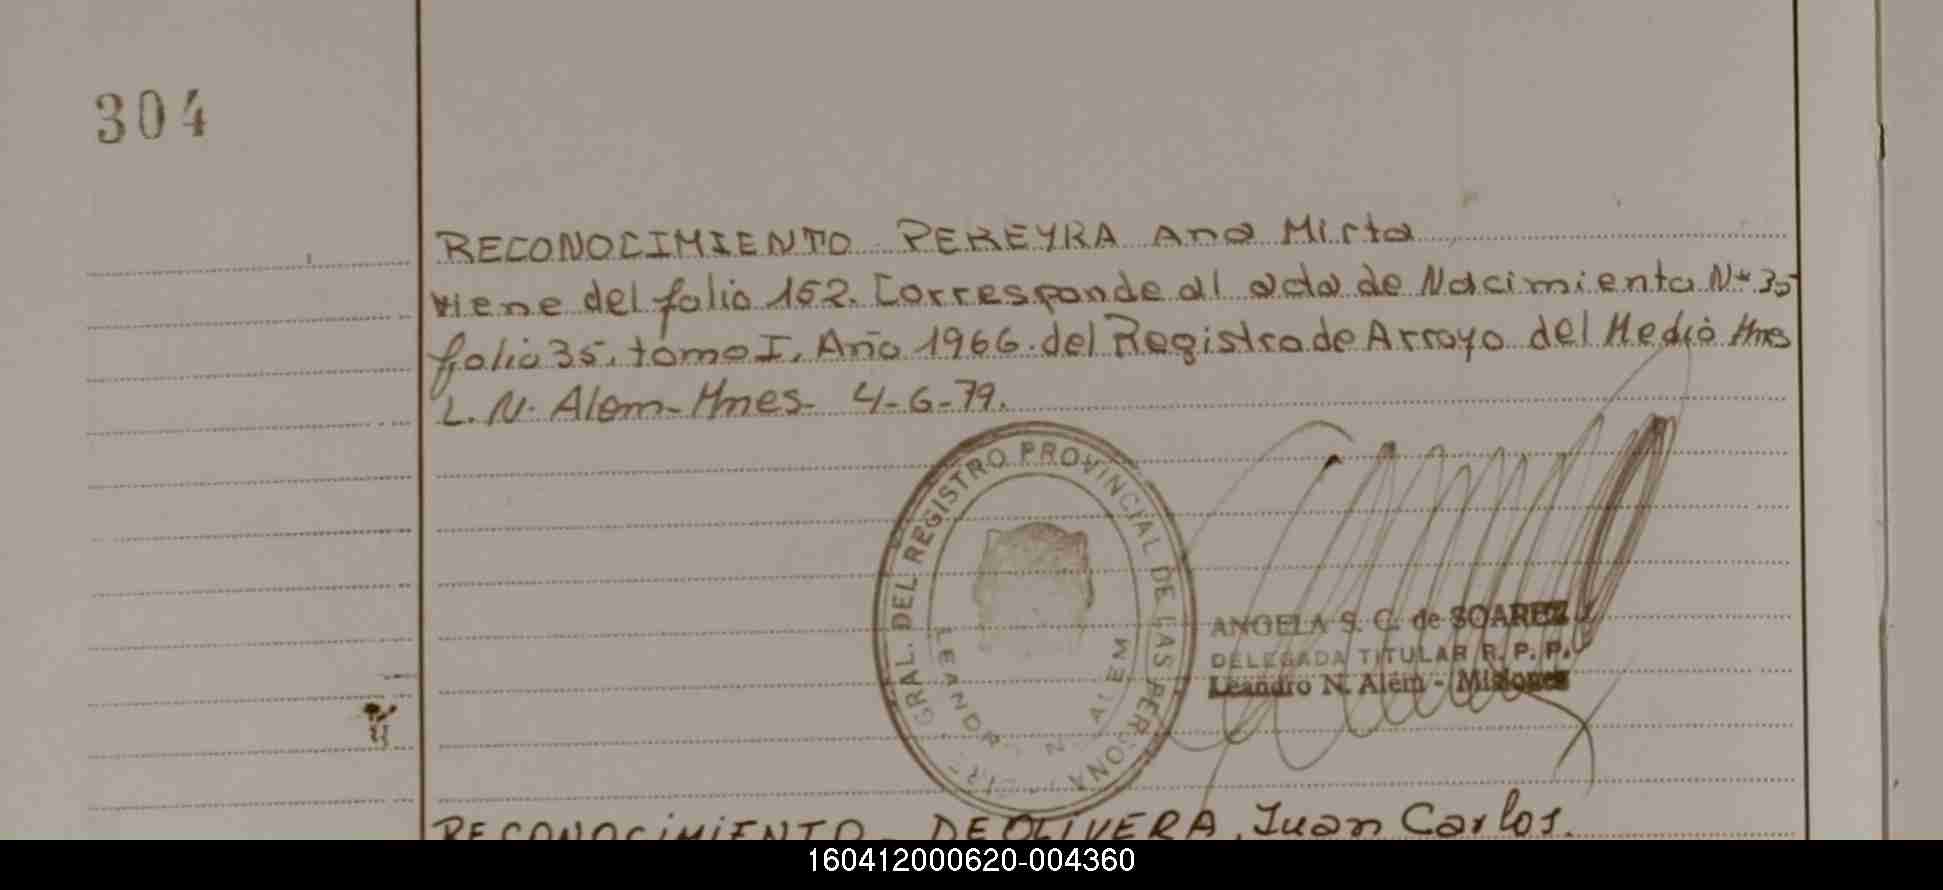 304
RECONOCIMIENTO PEREYRA Ana Mirta
viene del folio 152. Corresponde al acta de Nacimiento Nº 35
folio 35, tomo I, Año 1966 del Registro de Arroyo del Medio Mnes
L. N. Alem - Mnes - 4-6-79.
GRAL. DEL REGISTRO PROVINCIAL DE LAS PERSONA
LEANDRO N. ALEM
ANGELA S. C. de SOAREZ
DELEGADA TITULAR R. P. P.
Leandro N. Alem - Misiones
RECONOCIMIENTO - DE OLIVERA, Juan Carlos.
160412000620-004360